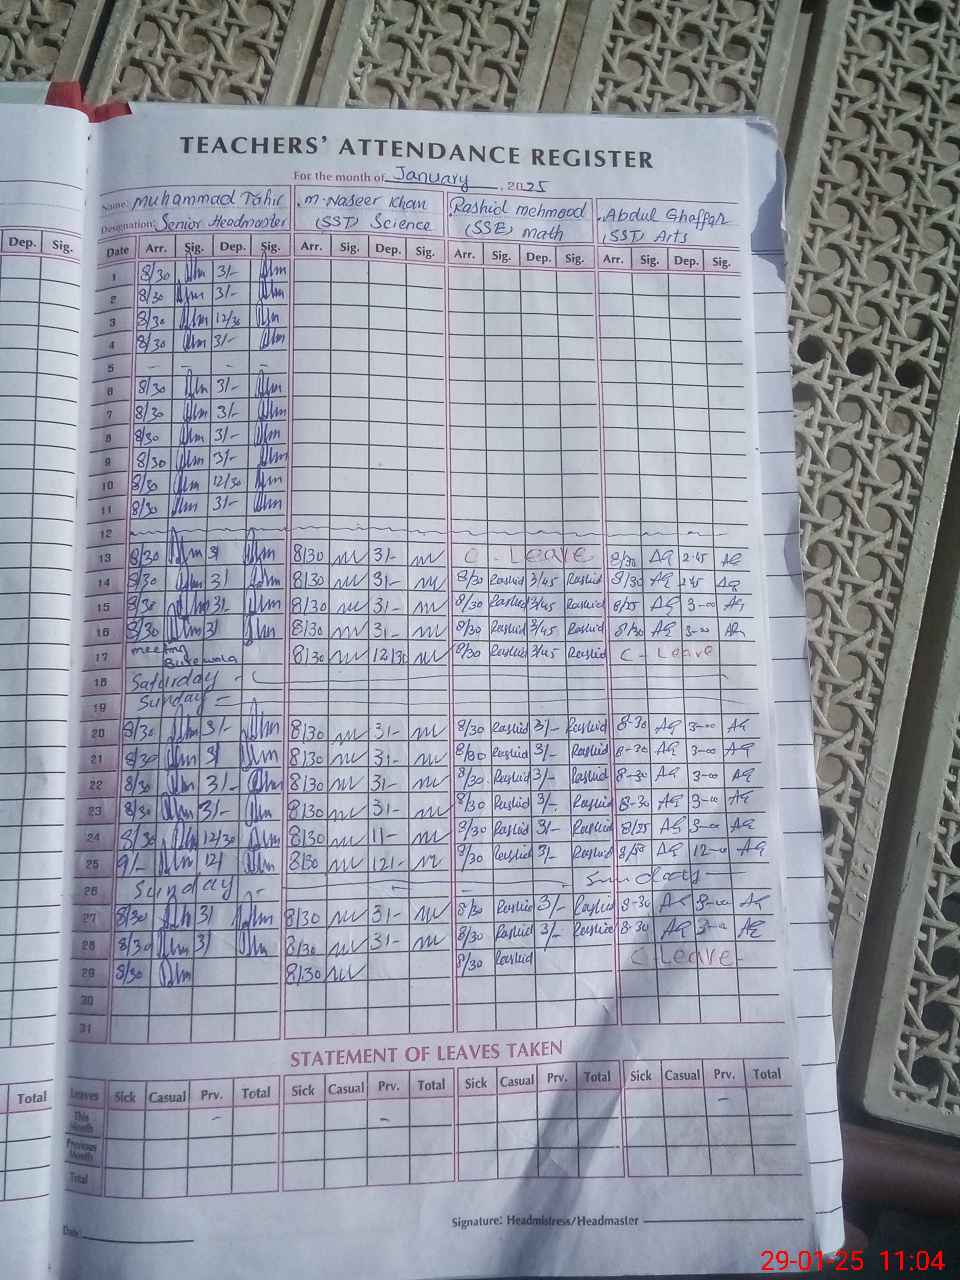 TEACHERS' ATTENDANCE REGISTER
For the month of January, 2025
Name: Muhammad Tahir M. Naseer Khan Rashid Mehmood Abdul Ghaffar
Designation: Senior Headmaster (SST) Science (SSE) math (SST) Arts
Dep. Sig. Date Arr. Sig. Dep. Sig. Arr. Sig. Dep. Sig. Arr. Sig. Dep. Sig. Arr. Sig. Dep. Sig.
1 8/30 3/-
2 8/30 3/-
3 8/30 12/30
4 8/30 3/-
5 - - - -
6 8/30 3/-
7 8/30 3/-
8 8/30 3/-
9 8/30 3/-
10 8/30 12/30
11 8/30 3/-
12
13 8/30 3/ 8/30 3/- C - Leave 8/30 AG 2-45 AG
14 8/30 3/ 8/30 3/- 8/30 Rashid 3/45 Rashid 8/30 AG 2-45 AG
15 8/30 3/- 8/30 3/- 8/30 Rashid 3/45 Rashid 8/25 AG 3-00 AG
16 8/30 3/ 8/30 3/- 8/30 Rashid 3/45 Rashid 8/30 AG 3-00 AG
17 meeting Burewala 8/30 12/30 8/30 Rashid 3/45 Rashid C - Leave
18 Saturday
19 Sunday
20 8/30 3/- 8/30 3/- 8/30 Rashid 3/- Rashid 8-30 AG 3-00 AG
21 8/30 3/ 8/30 3/- 8/30 Rashid 3/- Rashid 8-30 AG 3-00 AG
22 8/30 3/- 8/30 3/- 8/30 Rashid 3/- Rashid 8-30 AG 3-00 AG
23 8/30 3/- 8/30 3/- 8/30 Rashid 3/- Rashid 8-30 AG 3-00 AG
24 8/30 12/30 8/30 11- 8/30 Rashid 3/- Rashid 8/25 AG 3-00 AG
25 9/- 12/ 8/30 12/- 8/30 Rashid 3/- Rashid AG 12-00 AG
26 Sunday Sunday
27 8/30 3/ 8/30 3/- 8/30 Rashid 3/- Rashid 8-30 AG 3-00 AG
28 8/30 3/ 8/30 3/- 8/30 Rashid 3/- Rashid 8-30 AG 3-00 AG
29 8/30 8/30 8/30 Rashid C - Leave -
30
31
STATEMENT OF LEAVES TAKEN
Total Leaves Sick Casual Prv. Total Sick Casual Prv. Total Sick Casual Prv. Total Sick Casual Prv. Total
This Month - - -
Previous Month
Total
Signature: Headmistress/Headmaster
Date:
29-01-25 11:04